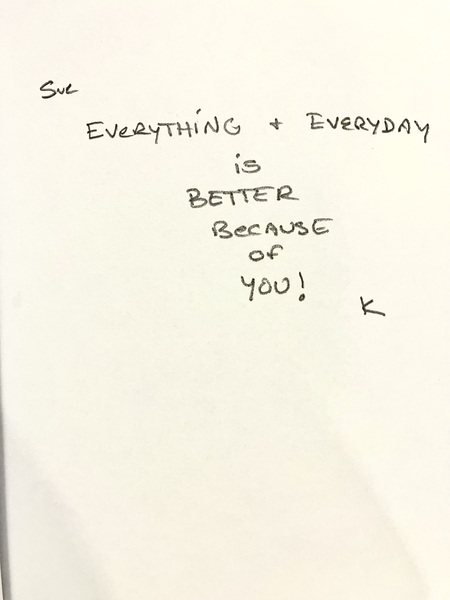 Sue
EVERYTHING + EVERYDAY
is
BETTER
BECAUSE
OF
YOU!
K